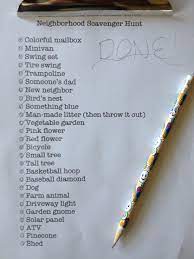 Neighborhood Scavenger Hunt
DONE
Colorful mailbox
Minivan
Swing set
Tire swing
Trampoline
Someone's dad
New neighbor
Bird's nest
Something blue
Man-made litter (then throw it out)
Vegetable garden
Pink flower
Red flower
Bicycle
Small tree
Tall tree
Basketball hoop
Baseball diamond
Dog
Farm animal
Driveway light
Garden gnome
Solar panel
ATV
Pinecone
Shed